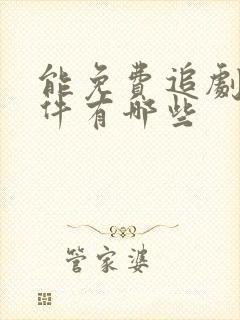 能免費追劇
件有哪些
管家婆